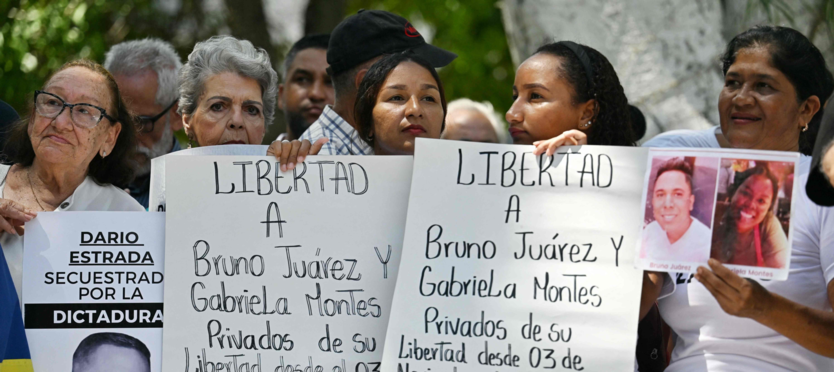 DARIO
ESTRADA
SECUESTRAD
POR LA
DICTADURA
LIBERTAD
A
Bruno Juárez Y
Gabriela Montes
Privados de su
Libertad desde el 03
LIBERTAD
A
Bruno Juárez Y
Gabriela Montes
Privados de su
Libertad desde 03 de
Bruno Juárez
Gabriela Montes